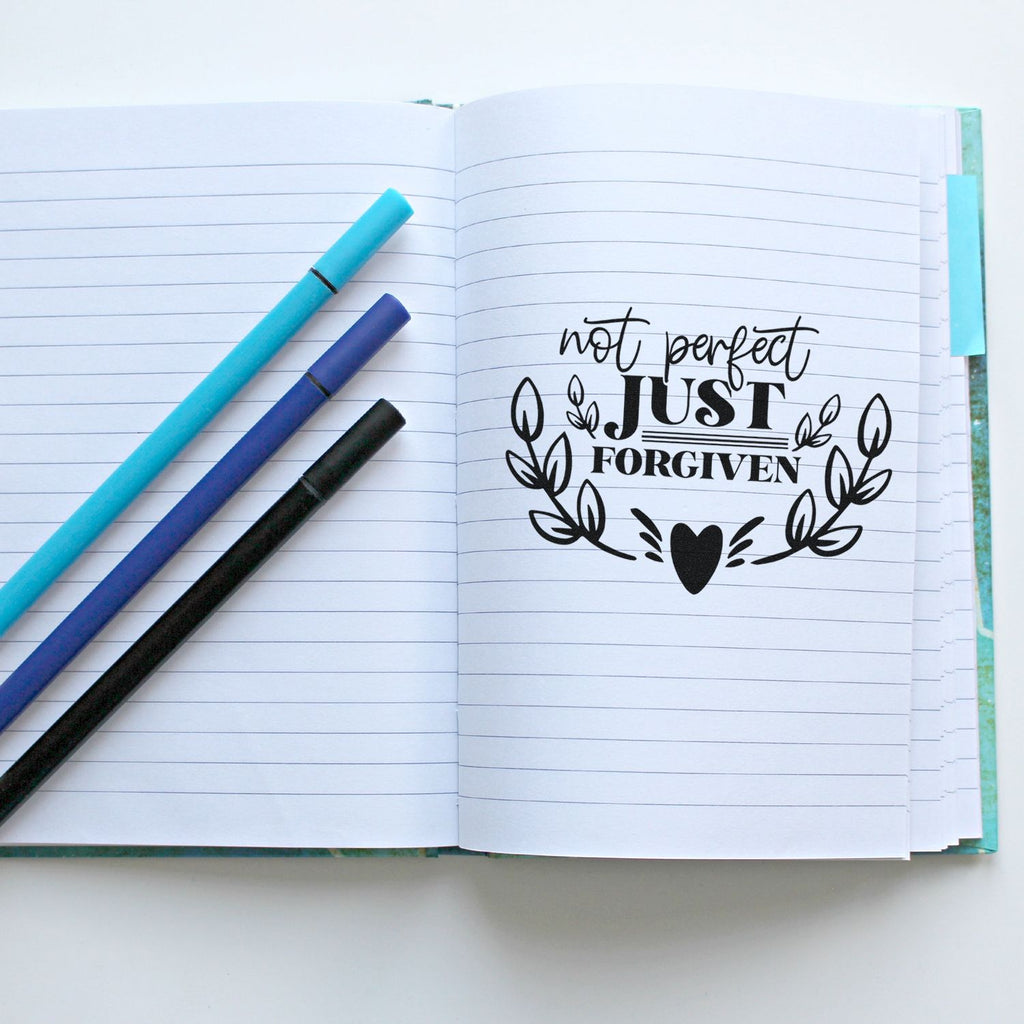 not perfect
JUST
FORGIVEN